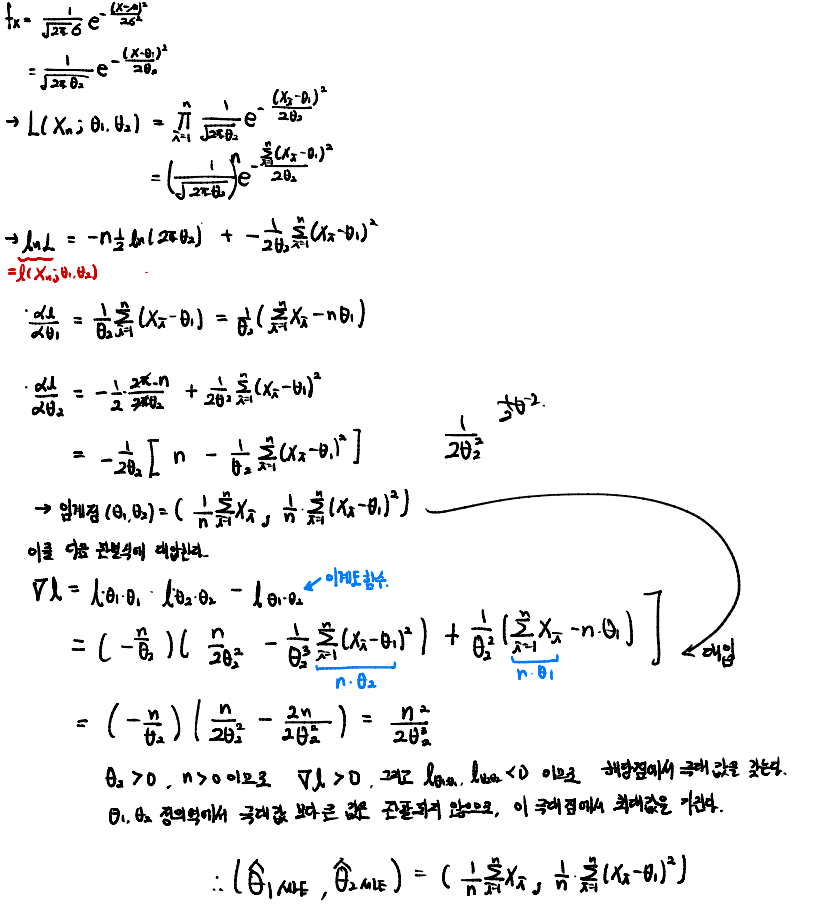 f_X = \frac{1}{\sqrt{2π}σ} e^{-\frac{(x-μ)^2}{2σ^2}}
= \frac{1}{\sqrt{2πθ_2}} e^{-\frac{(x-θ_1)^2}{2θ_2}}
→ L(X_n; θ_1, θ_2) = \prod_{i=1}^{n} \frac{1}{\sqrt{2πθ_2}} e^{-\frac{(X_i-θ_1)^2}{2θ_2}}
= (\frac{1}{\sqrt{2πθ_2}})^n e^{-\frac{\sum_{i=1}^{n}(X_i-θ_1)^2}{2θ_2}}
→ ln L = -n\frac{1}{2} ln(2πθ_2) + -\frac{1}{2θ_2} \sum_{i=1}^{n}(X_i-θ_1)^2
= l(X_n; θ_1, θ_2)
· \frac{dl}{dθ_1} = \frac{1}{θ_2} \sum_{i=1}^{n}(X_i-θ_1) = \frac{1}{θ_2}(\sum_{i=1}^{n}X_i - nθ_1)
· \frac{dl}{dθ_2} = -\frac{1}{2}·\frac{2π·n}{2πθ_2} + \frac{1}{2θ_2^2} \sum_{i=1}^{n}(X_i-θ_1)^2
= -\frac{1}{2θ_2}[n - \frac{1}{θ_2} \sum_{i=1}^{n}(X_i-θ_1)^2]
\frac{1}{2θ_2^2} \frac{1}{2}θ^{-2}.
→ 임계점 (θ_1, θ_2) = (\frac{1}{n}\sum_{i=1}^{n}X_i, \frac{1}{n}·\sum_{i=1}^{n}(X_i-θ_1)^2)
이를 다음 판별식에 대입한다.
∇l = l_{θ_1·θ_1} · l_{θ_2·θ_2} - l_{θ_1·θ_2} ← 이계도함수.
= (-\frac{n}{θ_2})(\frac{n}{2θ_2^2} - \frac{1}{θ_2^3} \sum_{i=1}^{n}(X_i-θ_1)^2) + \frac{1}{θ_2^2}(\sum_{i=1}^{n}X_i - n·θ_1)] 대입
n·θ_2 n·θ_1
= (-\frac{n}{θ_2})(\frac{n}{2θ_2^2} - \frac{2n}{2θ_2^2}) = \frac{n^2}{2θ_2^3}
θ_2 > 0, n > 0 이므로 ∇l > 0, 그리고 l_{θ_1θ_1}, l_{θ_2θ_2} < 0 이므로 해당점에서 극대값을 갖는다.
θ_1, θ_2 정의역에서 극대값 보다 큰 값은 관찰되지 않으므로, 이 극대점에서 최대값을 가진다.
∴ (\hat{θ}_{1 MLE}, \hat{θ}_{2 MLE}) = (\frac{1}{n}\sum_{i=1}^{n}X_i, \frac{1}{n}·\sum_{i=1}^{n}(X_i-θ_1)^2)